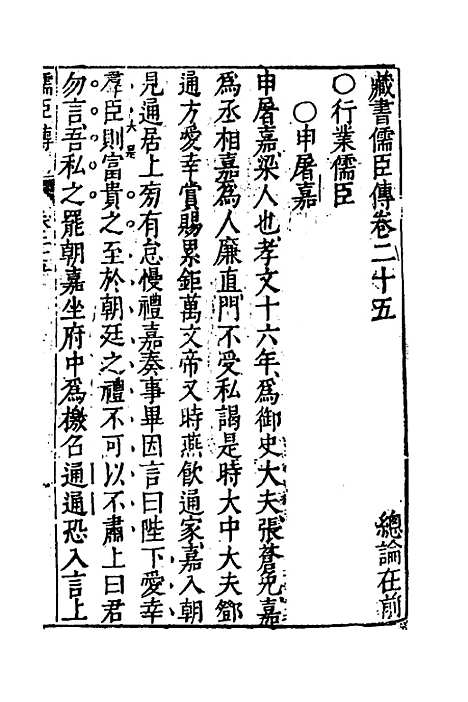 藏書儒臣傳卷二十五 總論在前
○行業儒臣
○申屠嘉
申屠嘉梁人也孝文十六年爲御史大夫張蒼免嘉
爲丞相嘉爲人廉直門不受私謁是時大中大夫鄧
通方愛幸賞賜累鉅萬文帝又時燕飲通家嘉入朝
見通居上旁有怠慢禮嘉奏事畢因言曰陛下愛幸
大是
羣臣則富貴之至於朝廷之禮不可以不肅上曰君
勿言吾私之罷朝嘉坐府中爲檄召通通恐入言上
儒臣傳